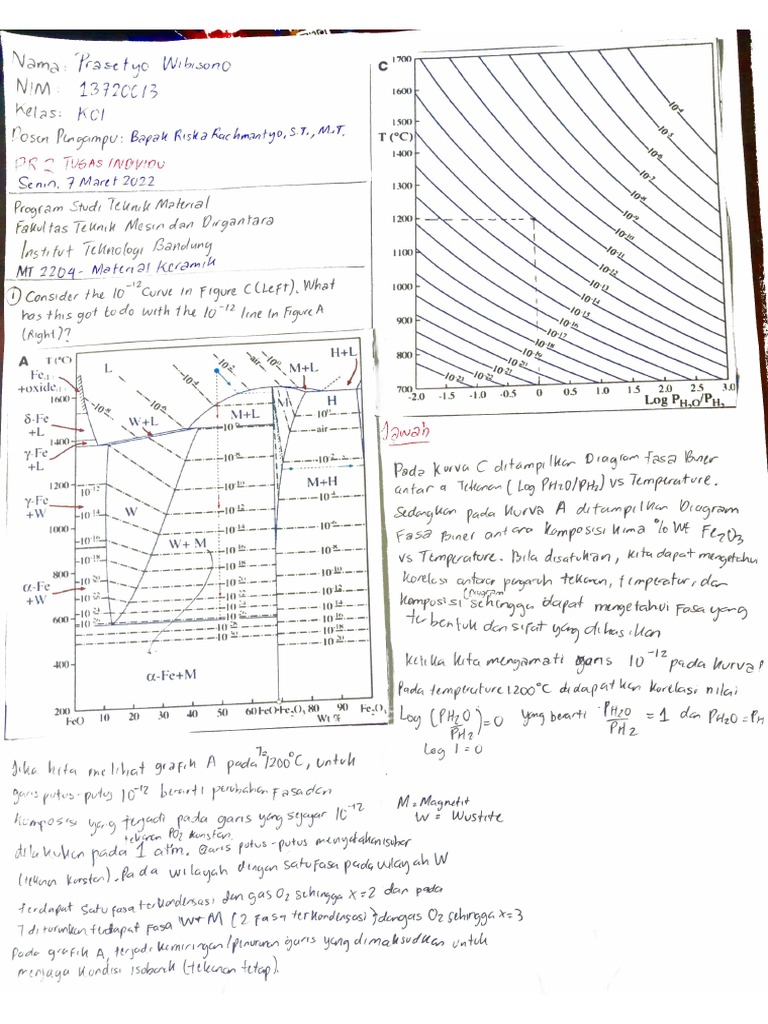 Nama: Prasetyo Wibisono
NIM: 13720013
Kelas: K01
Dosen Pengampu: Bapak Riska Rachmantyo, S.T., M.T.
PR 2 TUGAS INDIVIDU
Senin, 7 Maret 2022
Program Studi Teknik Material
Fakultas Teknik Mesin dan Dirgantara
Institut Teknologi Bandung
MT 2204 - Material Keramik
① Consider the 10⁻¹² Curve in Figure C (Left). What
has this got to do with the 10⁻¹² line in Figure A
(Right)?
C
T (°C)
1700
1600
1500
1400
1300
1200
1100
1000
900
800
700
10⁻⁴
10⁻⁵
10⁻⁶
10⁻⁷
10⁻⁸
10⁻⁹
10⁻¹⁰
10⁻¹¹
10⁻¹²
10⁻¹³
10⁻¹⁴
10⁻¹⁵
10⁻¹⁶
10⁻¹⁷
10⁻¹⁸
10⁻¹⁹
10⁻²⁰
10⁻²¹
10⁻²²
10⁻²³
-2.0 -1.5 -1.0 -0.5 0 0.5 1.0 1.5 2.0 2.5 3.0
Log PH₂O/PH₂
A T (°C)
L
H+L
M+L
Fe
+oxide
1600
W+L
M+L
M
H
δ-Fe
+L
1400
γ-Fe
+L
air
M+H
1200
γ-Fe
+W
1000
W
W+M
800
α-Fe
+W
600
400
α-Fe+M
200
FeO 10 20 30 40 50 60 FeO•Fe₂O₃ 80 90 Fe₂O₃
Wt %
Jawab
Pada Kurva C ditampilkan Diagram fasa Biner
antara Tekanan (Log PH2O/PH2) vs Temperature.
Sedangkan pada Kurva A ditampilkan Diagram
Fasa Biner antara Komposisi Kimia % Wt Fe₂O₃
vs Temperature. Bila disatukan, kita dapat mengetahui
korelasi antara pengaruh tekanan, temperatur, dan
komposisi (Diagram) sehingga dapat mengetahui fasa yang
terbentuk dan sifat yang dihasilkan
Ketika kita mengamati garis 10⁻¹² pada kurva
Pada temperature 1200°C didapatkan korelasi nilai
Log (PH2O/PH2) = 0 yang berarti PH2O/PH2 = 1 dan PH2O = PH
Log 1 = 0
Jika kita melihat grafik A pada T=1200°C, untuk
garis putus-putus 10⁻¹² berarti perubahan fasa dan
komposisi yang terjadi pada garis yang sejajar 10⁻¹²
tekanan PO2 konstan.
dilakukan pada 1 atm. Garis putus-putus menyatakan isobar
(tekanan konstan). Pada wilayah dengan satu fasa pada wilayah W
terdapat satu fasa terkondensasi dan gas O₂ sehingga x=2 dan pada
T diturunkan terdapat fasa W+M (2 fasa terkondensasi) dan gas O₂ sehingga x=3
Pada grafik A, terjadi kemiringan/penurunan garis yang dimaksudkan untuk
menjaga kondisi isobarik (tekanan tetap).
M = Magnetit
W = Wustite